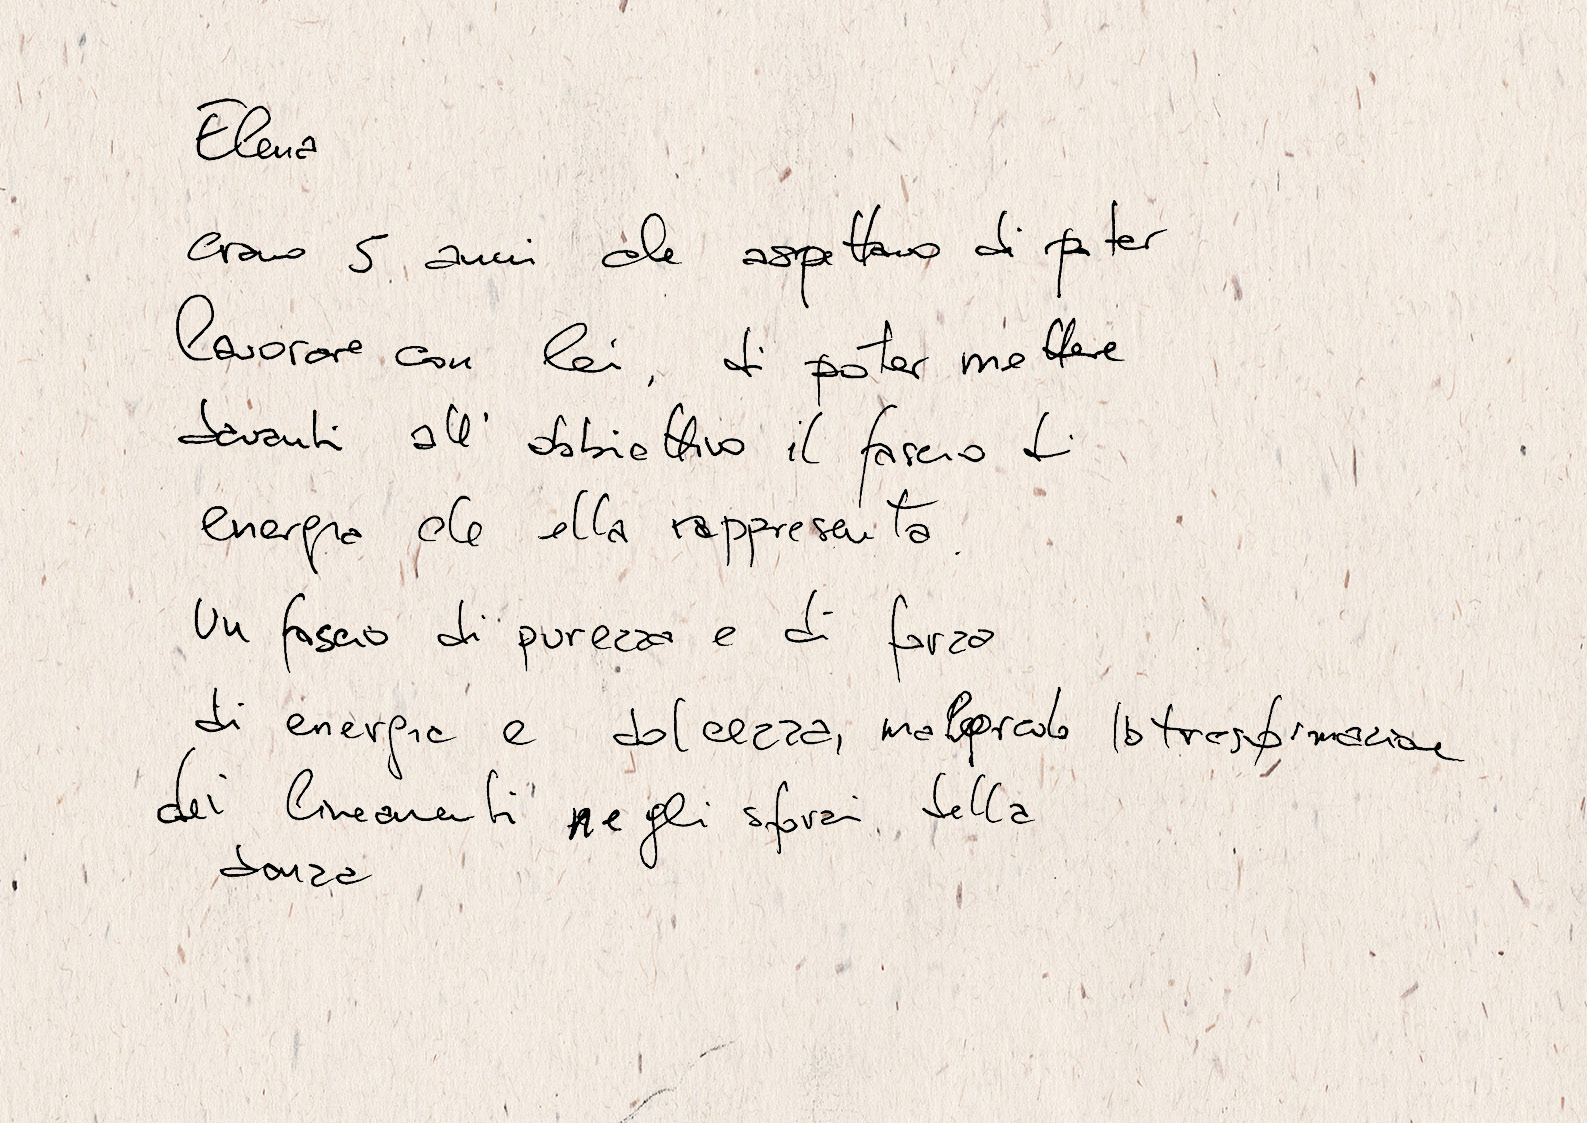 Elena
erano 5 anni che aspettavo di poter
lavorare con lei, di poter mettere
davanti all' obbiettivo il fascio di
energia che ella rappresenta.
Un fascio di purezza e di forza
di energia e dolcezza, la trasformazione
dei lineamenti negli sforzi della
danza